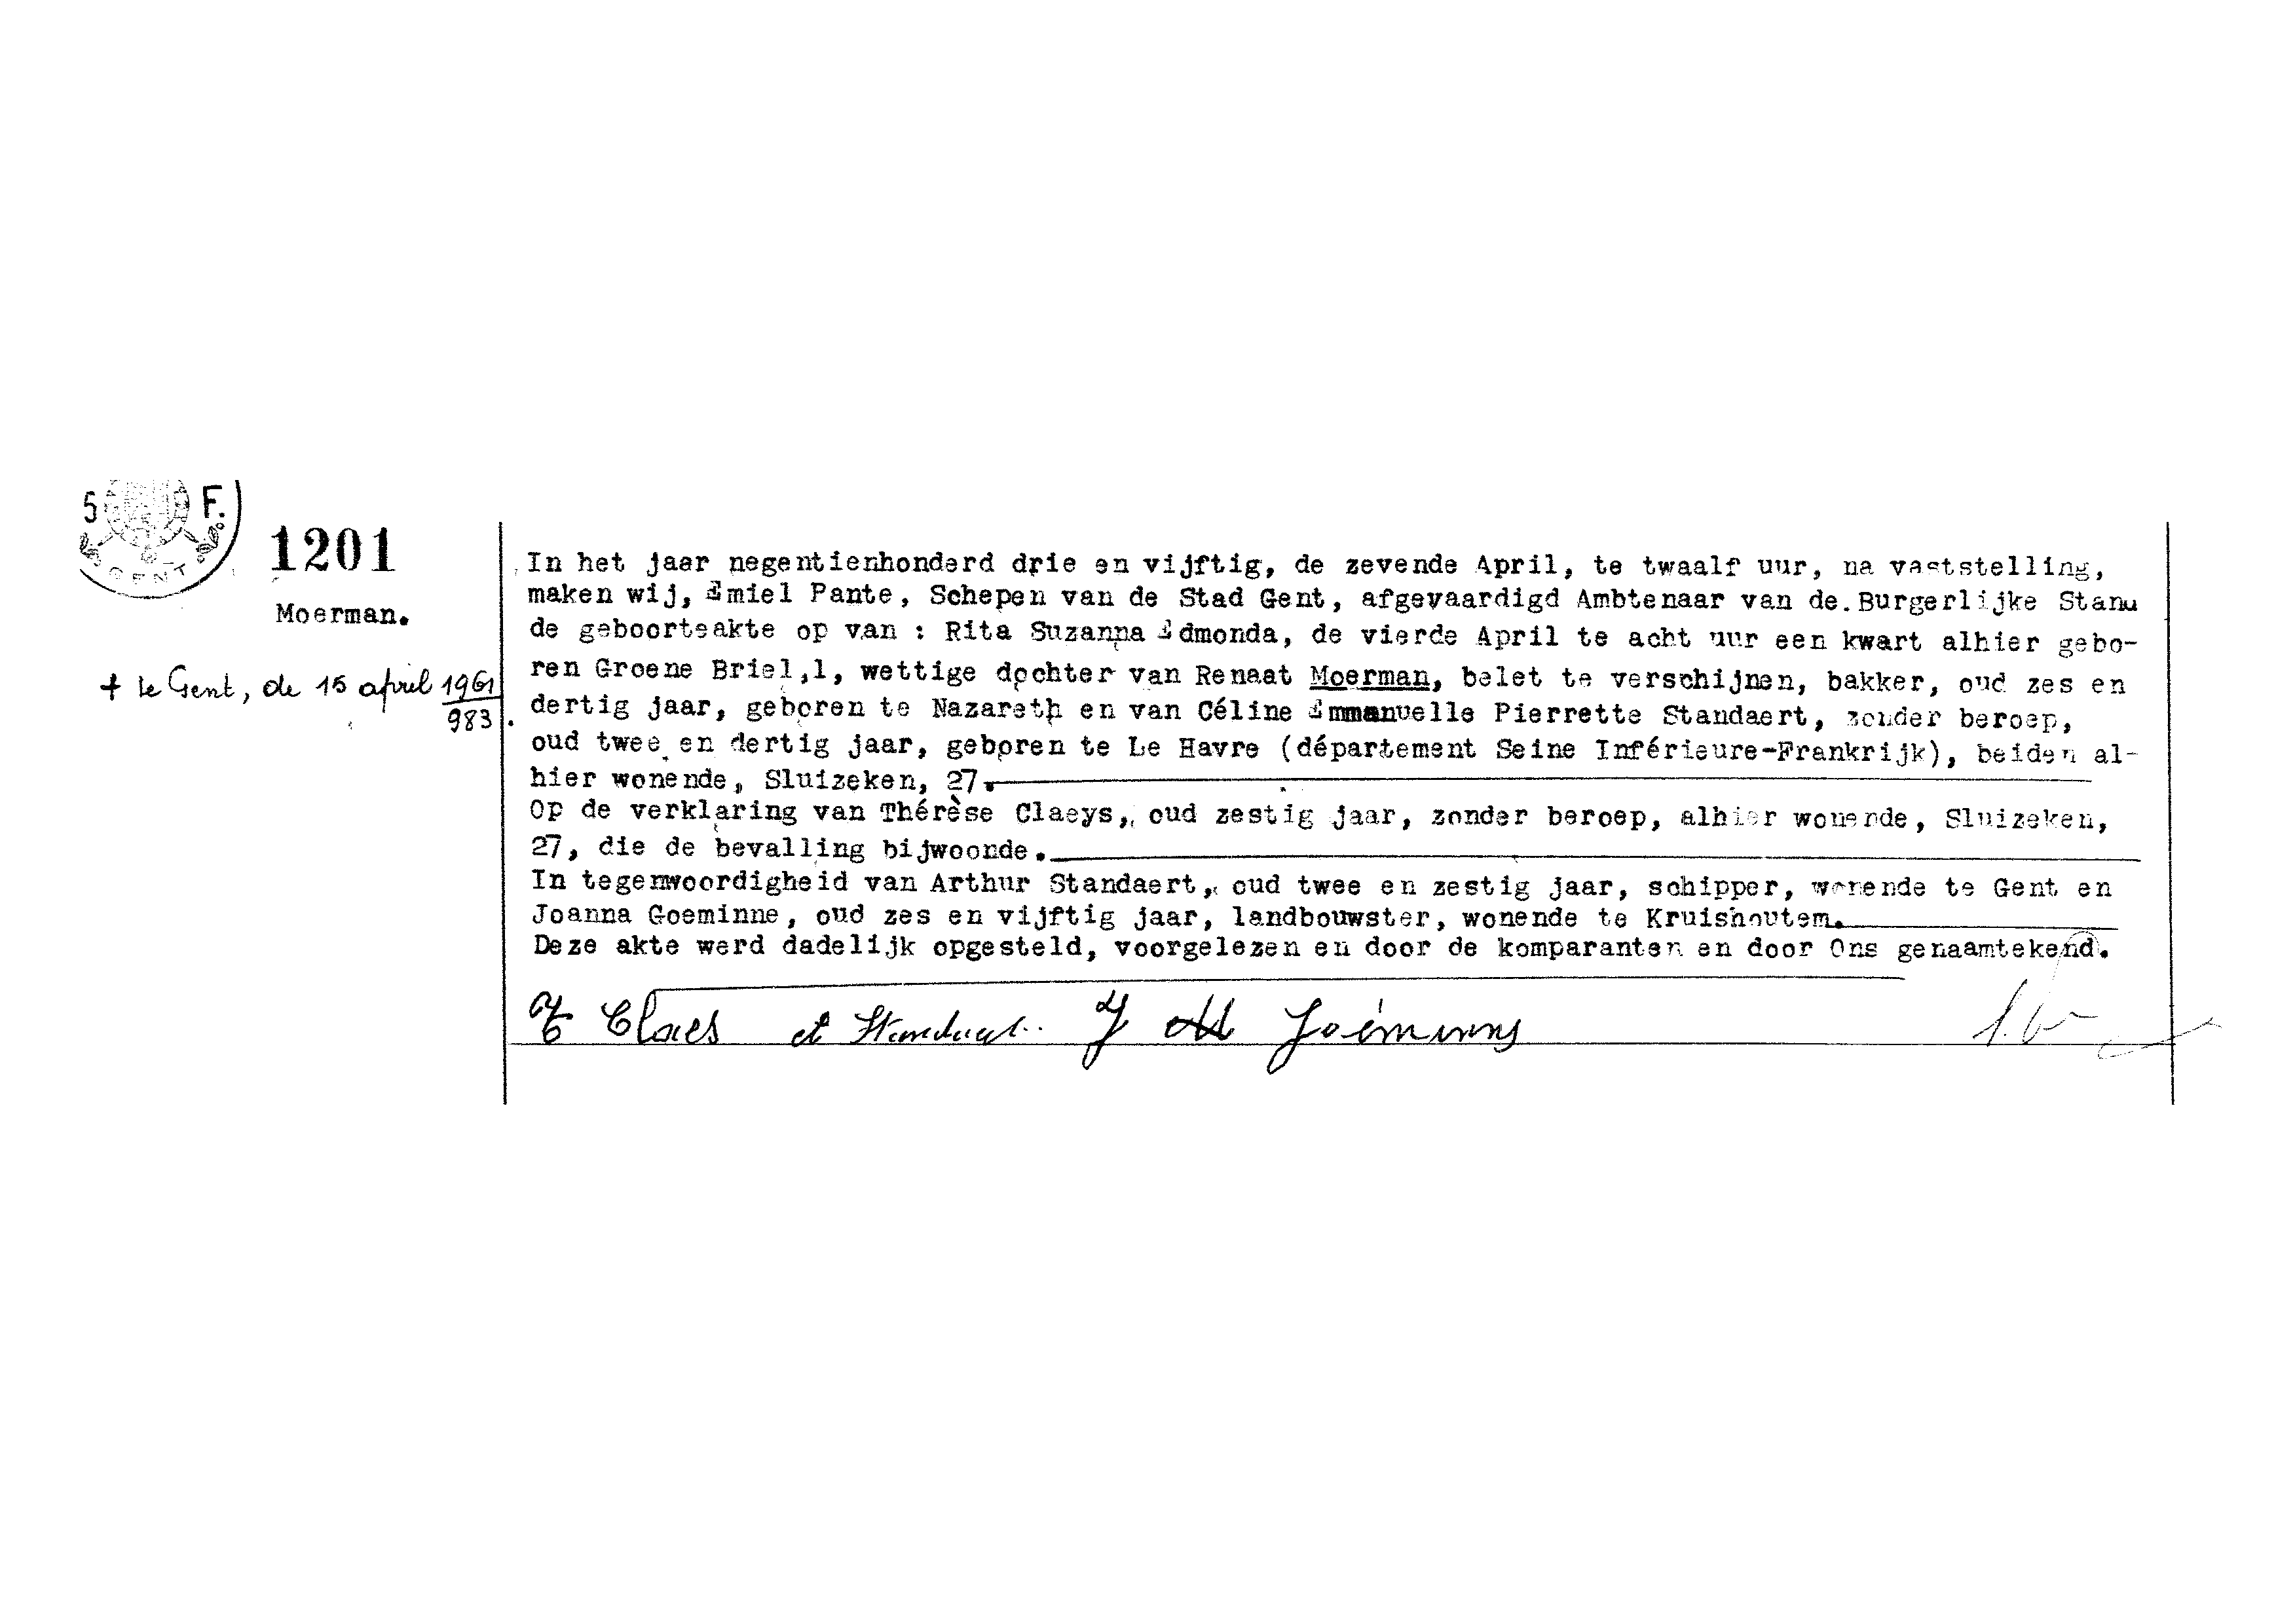 5 F.
GENT
1201
Moerman.
+ te Gent, de 15 april 1961
983.
In het jaar negentienhonderd drie en vijftig, de zevende April, te twaalf uur, na vaststelling,
maken wij, Emiel Pante, Schepen van de Stad Gent, afgevaardigd Ambtenaar van de Burgerlijke Stand
de geboorteakte op van : Rita Suzanna Edmonda, de vierde April te acht uur een kwart alhier gebo-
ren Groene Briel,1, wettige dochter van Renaat Moerman, belet te verschijnen, bakker, oud zes en
dertig jaar, geboren te Nazareth en van Céline Emmanuelle Pierrette Standaert, zonder beroep,
oud twee en dertig jaar, geboren te Le Havre (département Seine Inférieure-Frankrijk), beiden al-
hier wonende, Sluizeken, 27.
Op de verklaring van Thérèse Claeys, oud zestig jaar, zonder beroep, alhier wonende, Sluizeken,
27, die de bevalling bijwoonde.
In tegenwoordigheid van Arthur Standaert, oud twee en zestig jaar, schipper, wonende te Gent en
Joanna Goeminne, oud zes en vijftig jaar, landbouwster, wonende te Kruishoutem.
Deze akte werd dadelijk opgesteld, voorgelezen en door de komparanten en door Ons genaamtekend.
Claes Standaert